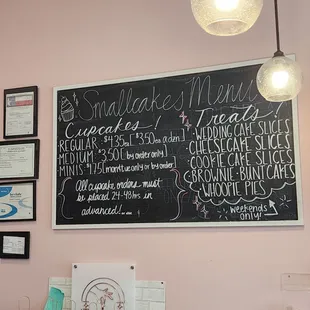 Smallcakes Menu
Cupcakes!
REGULAR $4.35ea/$3.50ea dzn
MEDIUM $3.50 (by order only)
MINIS $1.75 mon & tue only or by order
All cupcake orders must
be placed 24-48hrs in
advanced!
Treats!
WEDDING CAKE SLICES
CHEESECAKE SLICES
COOKIE CAKE SLICES
BROWNIE BUNTCAKES
WHOOPIE PIES
weekends
only!